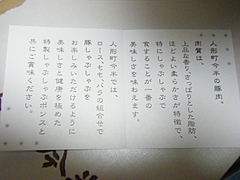 人形町今半の豚肉。
肉質は、
上品な香り、さっぱりとした脂肪、
ほどよい柔らかさが特徴で、
特にしゃぶしゃぶで
食することが一番の
美味しさを味わえます。
人形町今半では、
ロース、モモ、バラの組合せで
豚しゃぶしゃぶを
お楽しみいただけるように
美味しさと健康を極めた
特製しゃぶしゃぶポンスと
共にご賞味ください。